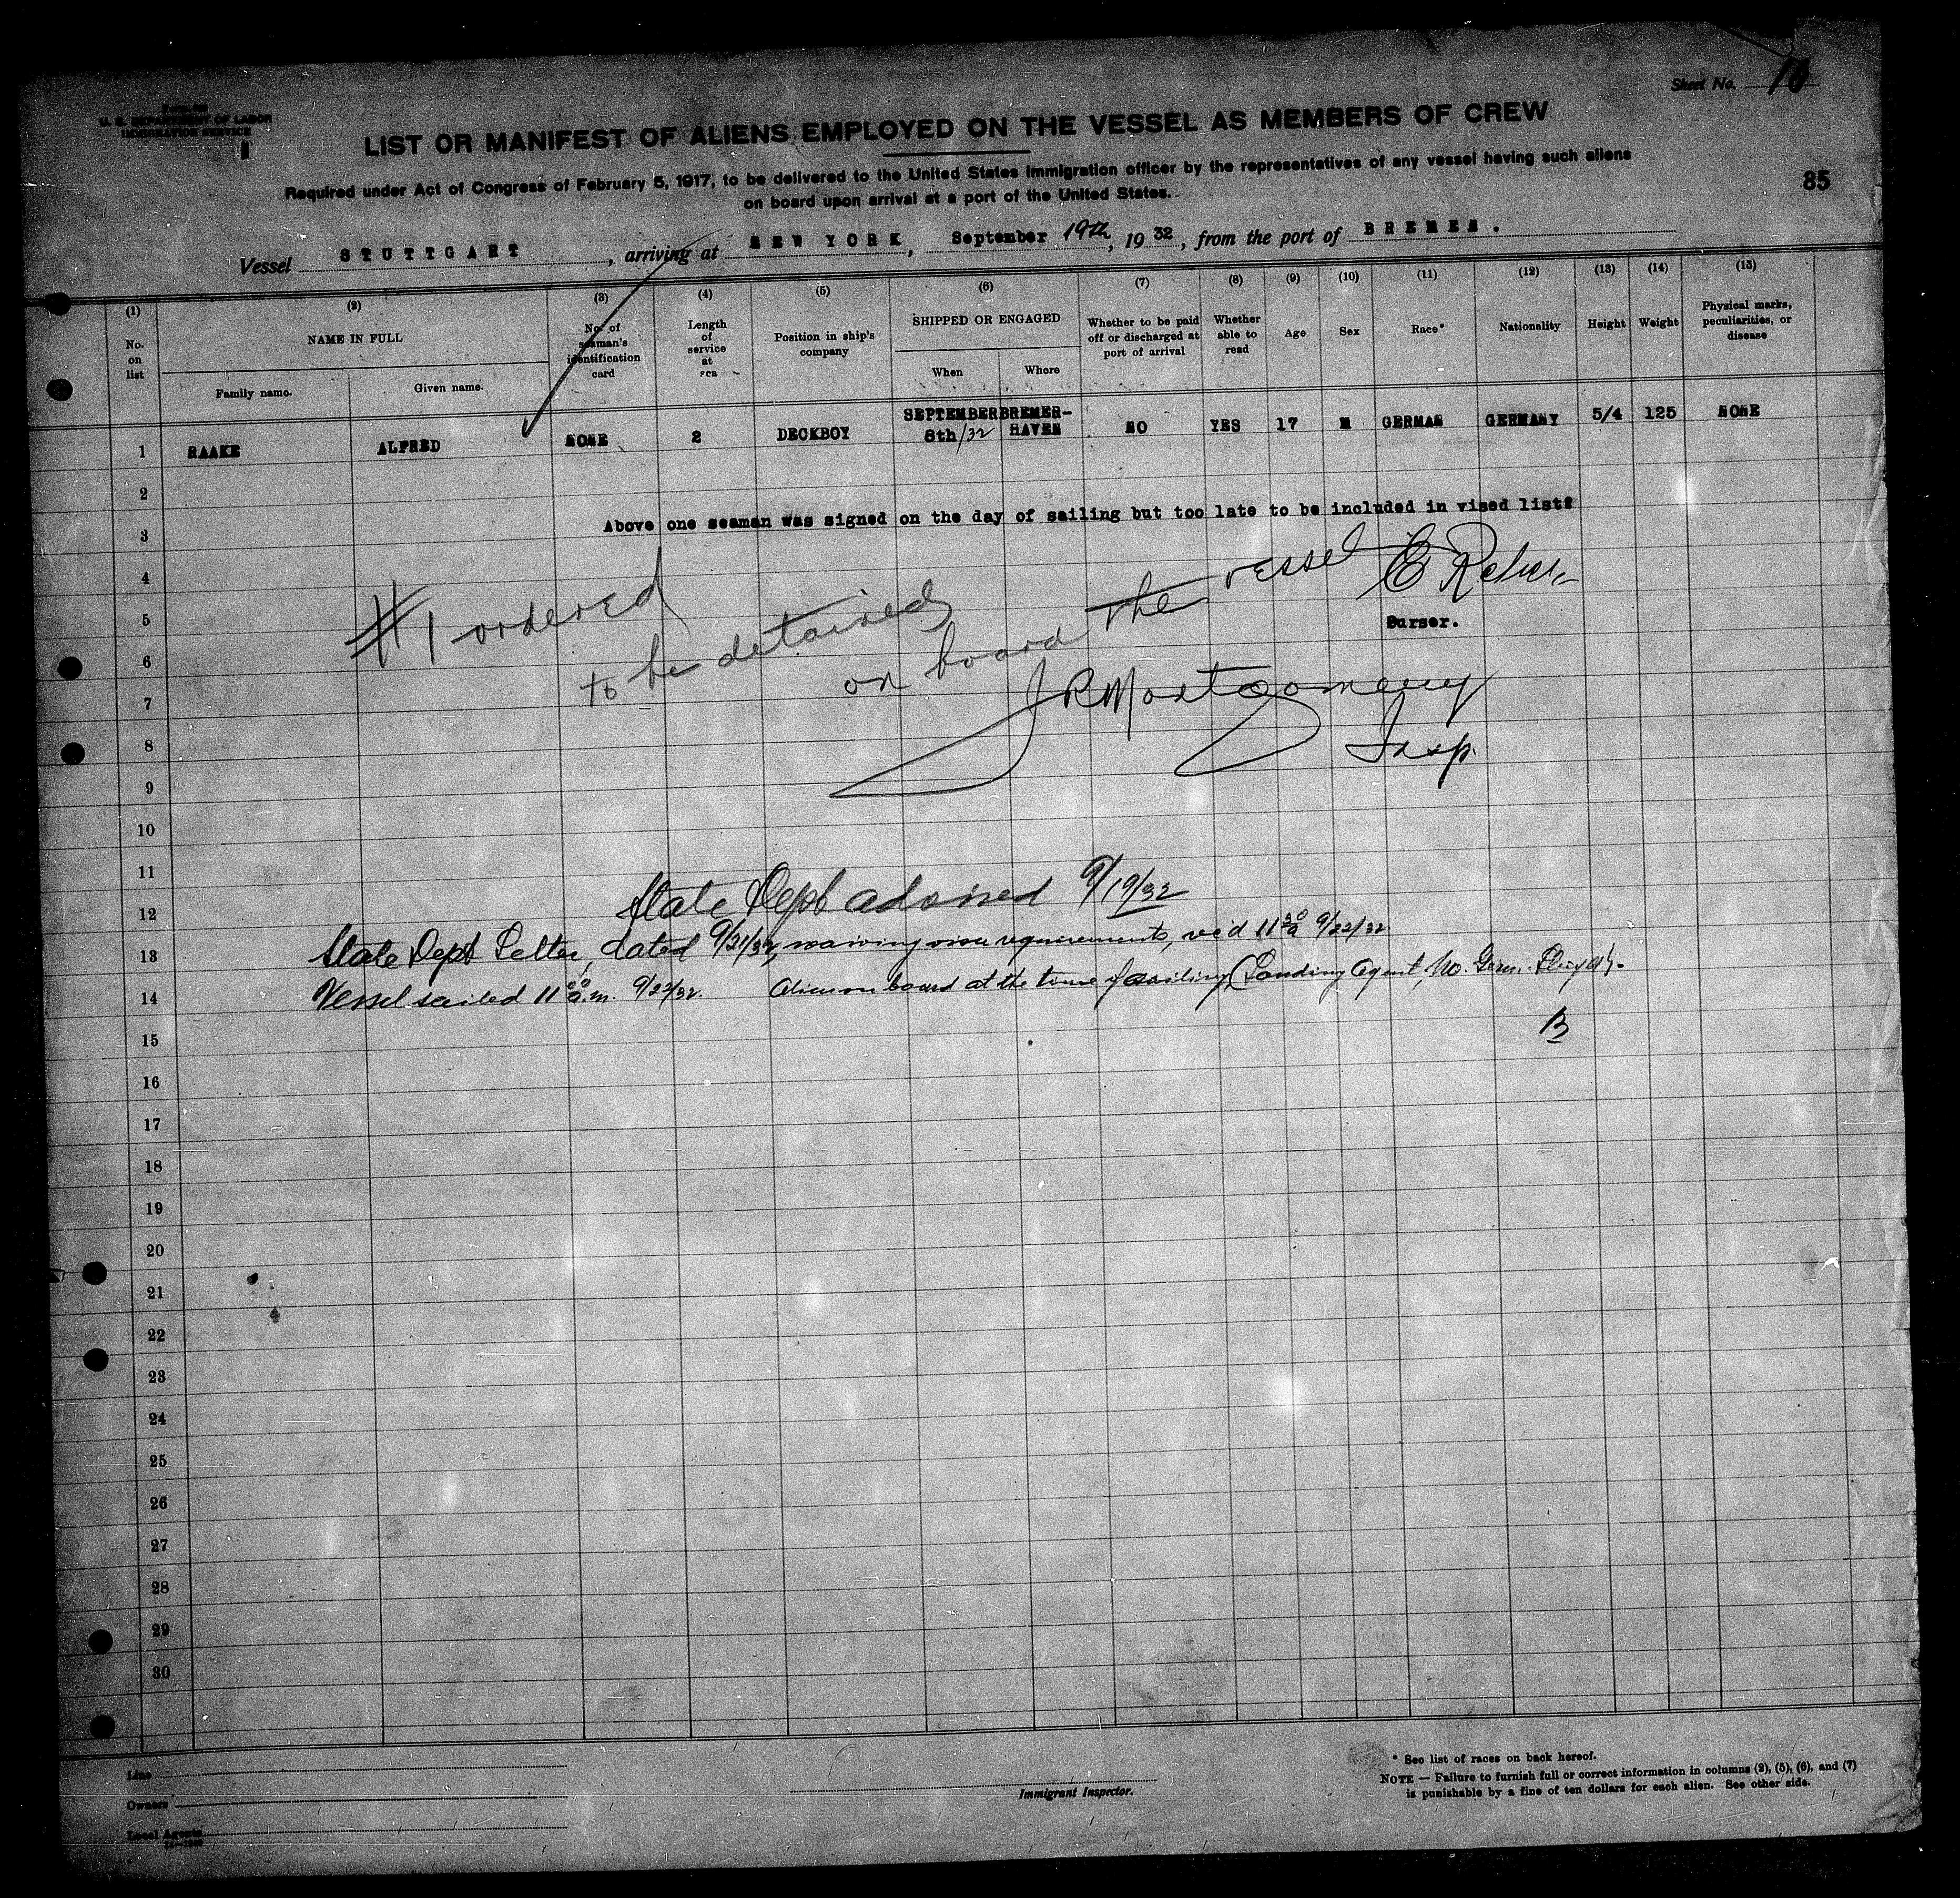 Sheet No. 10
U. S. DEPARTMENT OF LABOR
IMMIGRATION SERVICE
LIST OR MANIFEST OF ALIENS EMPLOYED ON THE VESSEL AS MEMBERS OF CREW
Required under Act of Congress of February 5, 1917, to be delivered to the United States immigration officer by the representatives of any vessel having such aliens
on board upon arrival at a port of the United States.
85
Vessel STUTTGART, arriving at NEW YORK, September 19th, 1932, from the port of BREMEN.
(1) (2) (3) (4) (5) (6) (7) (8) (9) (10) (11) (12) (13) (14) (15)
No. on list
NAME IN FULL
Family name. Given name.
No. of seaman's identification card
Length of service at sea
Position in ship's company
SHIPPED OR ENGAGED
When Where
Whether to be paid off or discharged at port of arrival
Whether able to read
Age
Sex
Race*
Nationality
Height
Weight
Physical marks, peculiarities, or disease
1 RAAKE ALFRED NONE 2 DECKBOY SEPTEMBER 8th/32 BREMER-HAVEN NO YES 17 M GERMAN GERMANY 5/4 125 NONE
2
3 Above one seaman was signed on the day of sailing but too late to be included in vised list
4
#1 ordered to be detained on board the vessel
5
Purser.
6
7
J R Montgomery
8
Insp.
9
10
11
12
State Dept advised 9/19/32
13
State Dept Letter, dated 9/21/32, waiving visa requirements, rec'd 11 30 a 9/22/32
14
Vessel sailed 11 00 a.m. 9/22/32. Alien on board at the time of sailing (Landing Agent, No. Germ. Lloyd).
15
B
16
17
18
19
20
21
22
23
24
25
26
27
28
29
30
Line
Owners
Local Agents
Immigrant Inspector.
* See list of races on back hereof.
NOTE — Failure to furnish full or correct information in columns (2), (5), (6), and (7)
is punishable by a fine of ten dollars for each alien. See other side.